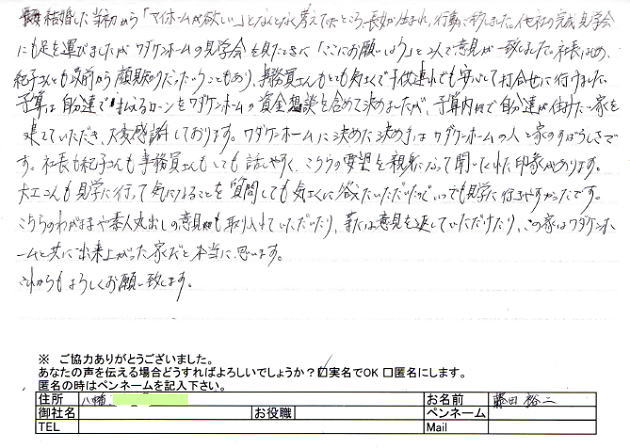 結婚した当初から「マイホームが欲しい」となんとなく考えてたところ、長女が生まれ、行動に移しました。他社の完成見学会
にも足を運びましたがワダケンホームの見学会を見たときに「ここにお願いしよう」と2人で意見が一致しました。社長はじめ、
紀子さんも以前から顔見知りだったいうこともあり、事務員さんもとても気さくで子供連れでも安心して打合せに行けました。
予算は自分達で払えるローンをワダケンホームの資金相談を含めて決めましたが、予算内で自分達が住みたい家を
建てていただき、大変感謝しております。ワダケンホームに決めた決め手はワダケンホームの人と家のすばらしさで
す。社長も紀子さんも事務員さんもとても話しやすく、こちらの要望を親身になって聞いてくれた印象があります。
大工さんも見学に行って気になることを質問しても気さくに答えていただいたのでいつでも見学に行きやすかったです。
こちらのわがままや素人丸出しの意見も取り入れていただいたり、または意見を返していただけたり、この家はワダケンホ
ームと共に出来上がった家だと本当に思います。
これからもよろしくお願い致します。
※ ご協力ありがとうございました。
あなたの声を伝える場合どうすればよろしいでしょうか？☑実名でOK ☐匿名にします。
匿名の時はペンネームを記入下さい。
住所 八幡 お名前 藤田 裕二
御社名 お役職 ペンネーム
TEL Mail